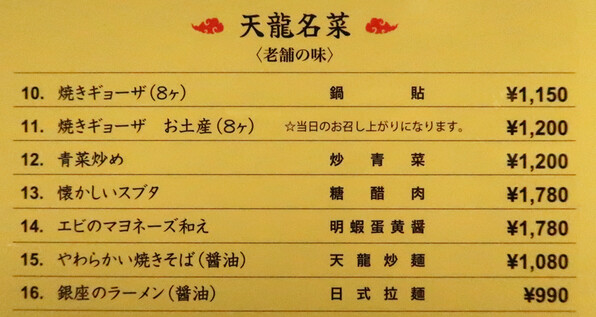 天龍名菜
〈老舗の味〉
10. 焼きギョーザ(8ヶ) 鍋貼 ¥1,150
11. 焼きギョーザ お土産(8ヶ) ☆当日のお召し上がりになります。 ¥1,200
12. 青菜炒め 炒青菜 ¥1,200
13. 懐かしいスブタ 糖醋肉 ¥1,780
14. エビのマヨネーズ和え 明蝦蛋黄醤 ¥1,780
15. やわらかい焼きそば(醤油) 天龍炒麺 ¥1,080
16. 銀座のラーメン(醤油) 日式拉麺 ¥990